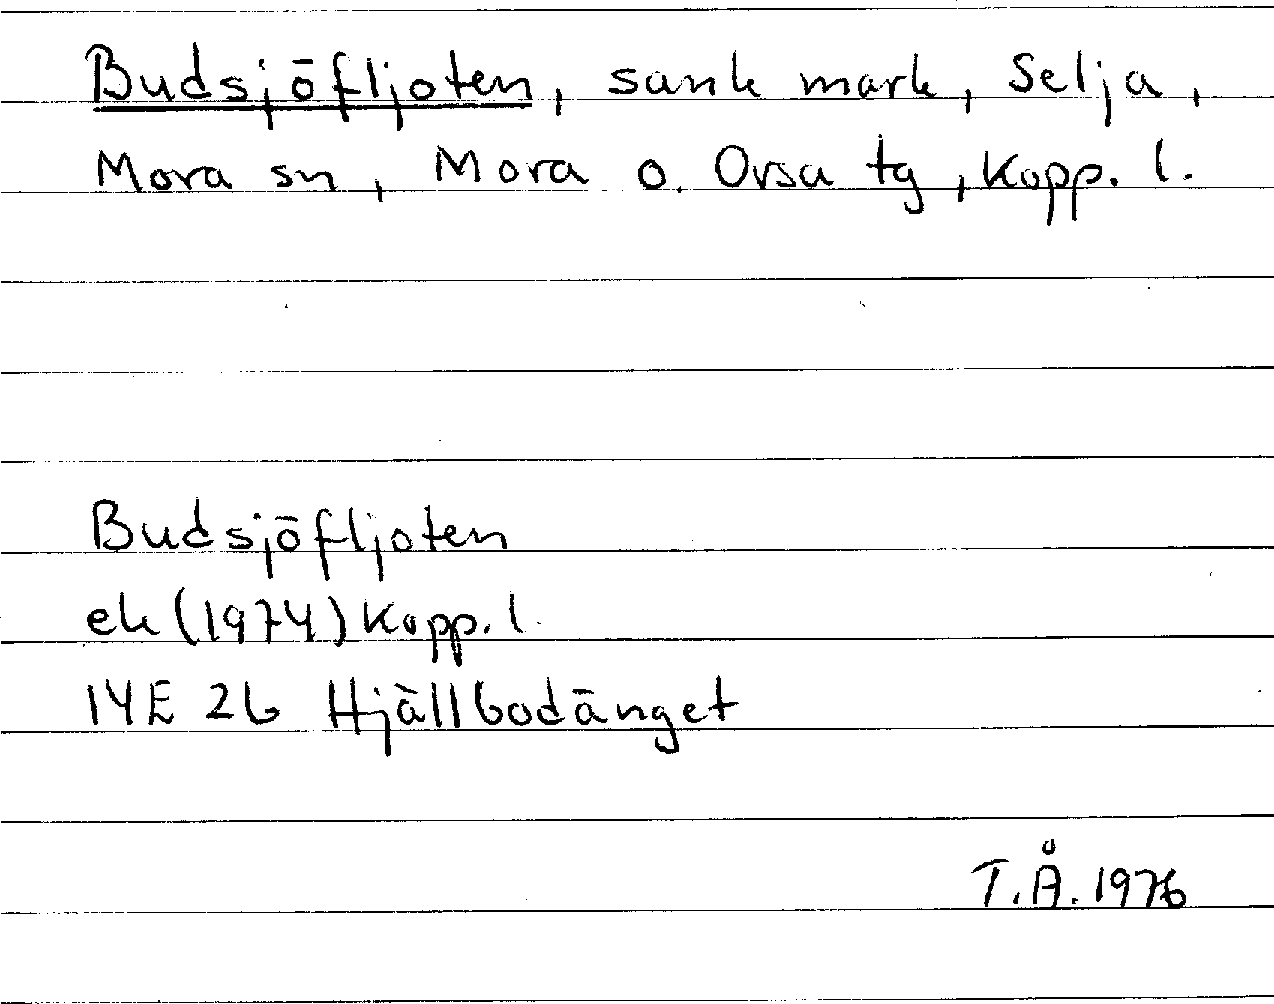 Budsjöfljoten, sank mark, Selja,
Mora sn, Mora o. Orsa tg, Kopp. l.
Budsjöfljoten
ek (1974) Kopp. l.
14E 2b Hjällbodänget
T.Å. 1976